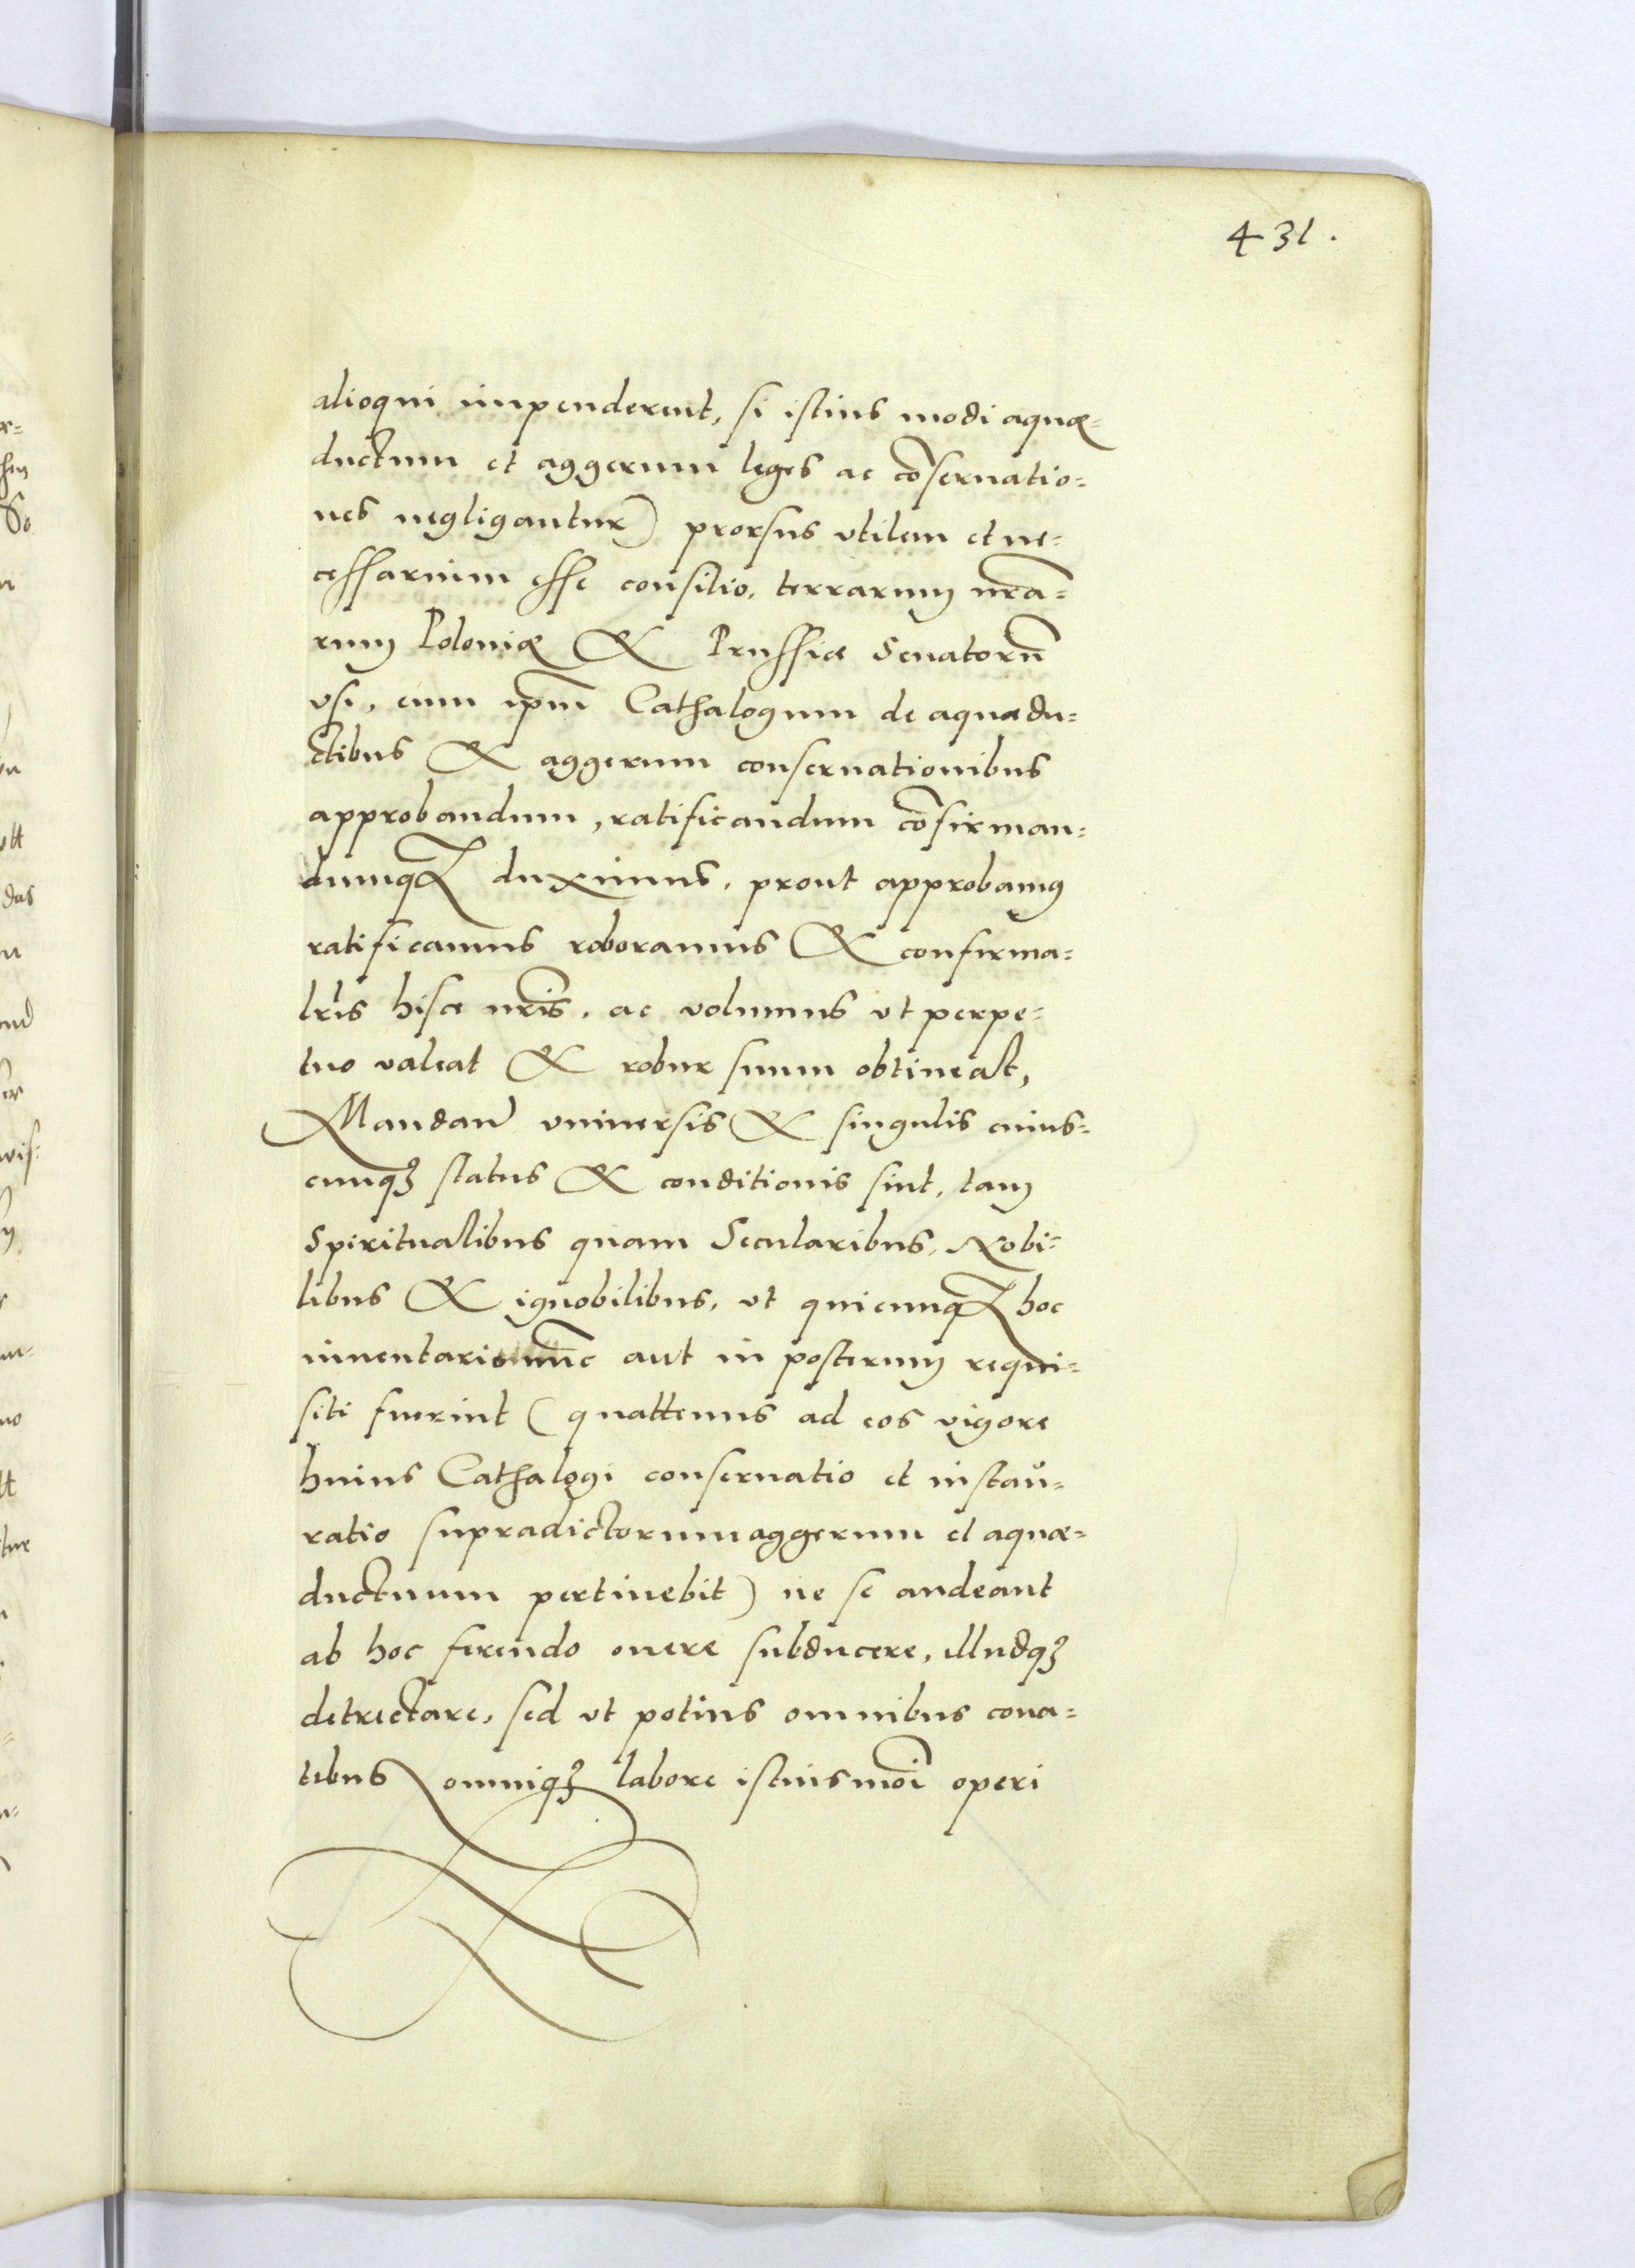 431.
alioqui impenderent, si istius modi aquæ=
ductum et aggerum leges ac cōseruatio=
nes negligantur) prorsus vtilem et ne=
cessarium esse consilio, terrarum nrā=
rum Poloniæ & Prussiæ Senatorū
vsi, eum ipm̄ Cathalogum de aquædu=
ctibus & aggerum conseruationibus
approbandum, ratificandum cōfirman=
dumqꝫ duximus, prout approbamꝰ
ratificamus roboramus & confirma=
lrīs hisce nrīs, ac volumus vt perpe=
tuo valeat & robur suum obtineat,
Mandan̄ vniuersis & singulis cuius=
cunqꝫ status & conditionis sint, tam
Spiritualibus quam Secularibus, Nobi=
libus & ignobilibus, vt quicunqꝫ hoc
inuentario nūc aut in posterum requi=
siti fuerint (quattenus ad eos vigore
huius Cathalogi conseruatio et instau=
ratio supradictorum aggerum et aquæ=
ductuum pertinebit) ne se audeant
ab hoc ferendo onere subducere, illudqꝫ
detrectare, sed vt potius omnibus cona=
tibus omniqꝫ labore istiusmōi operi